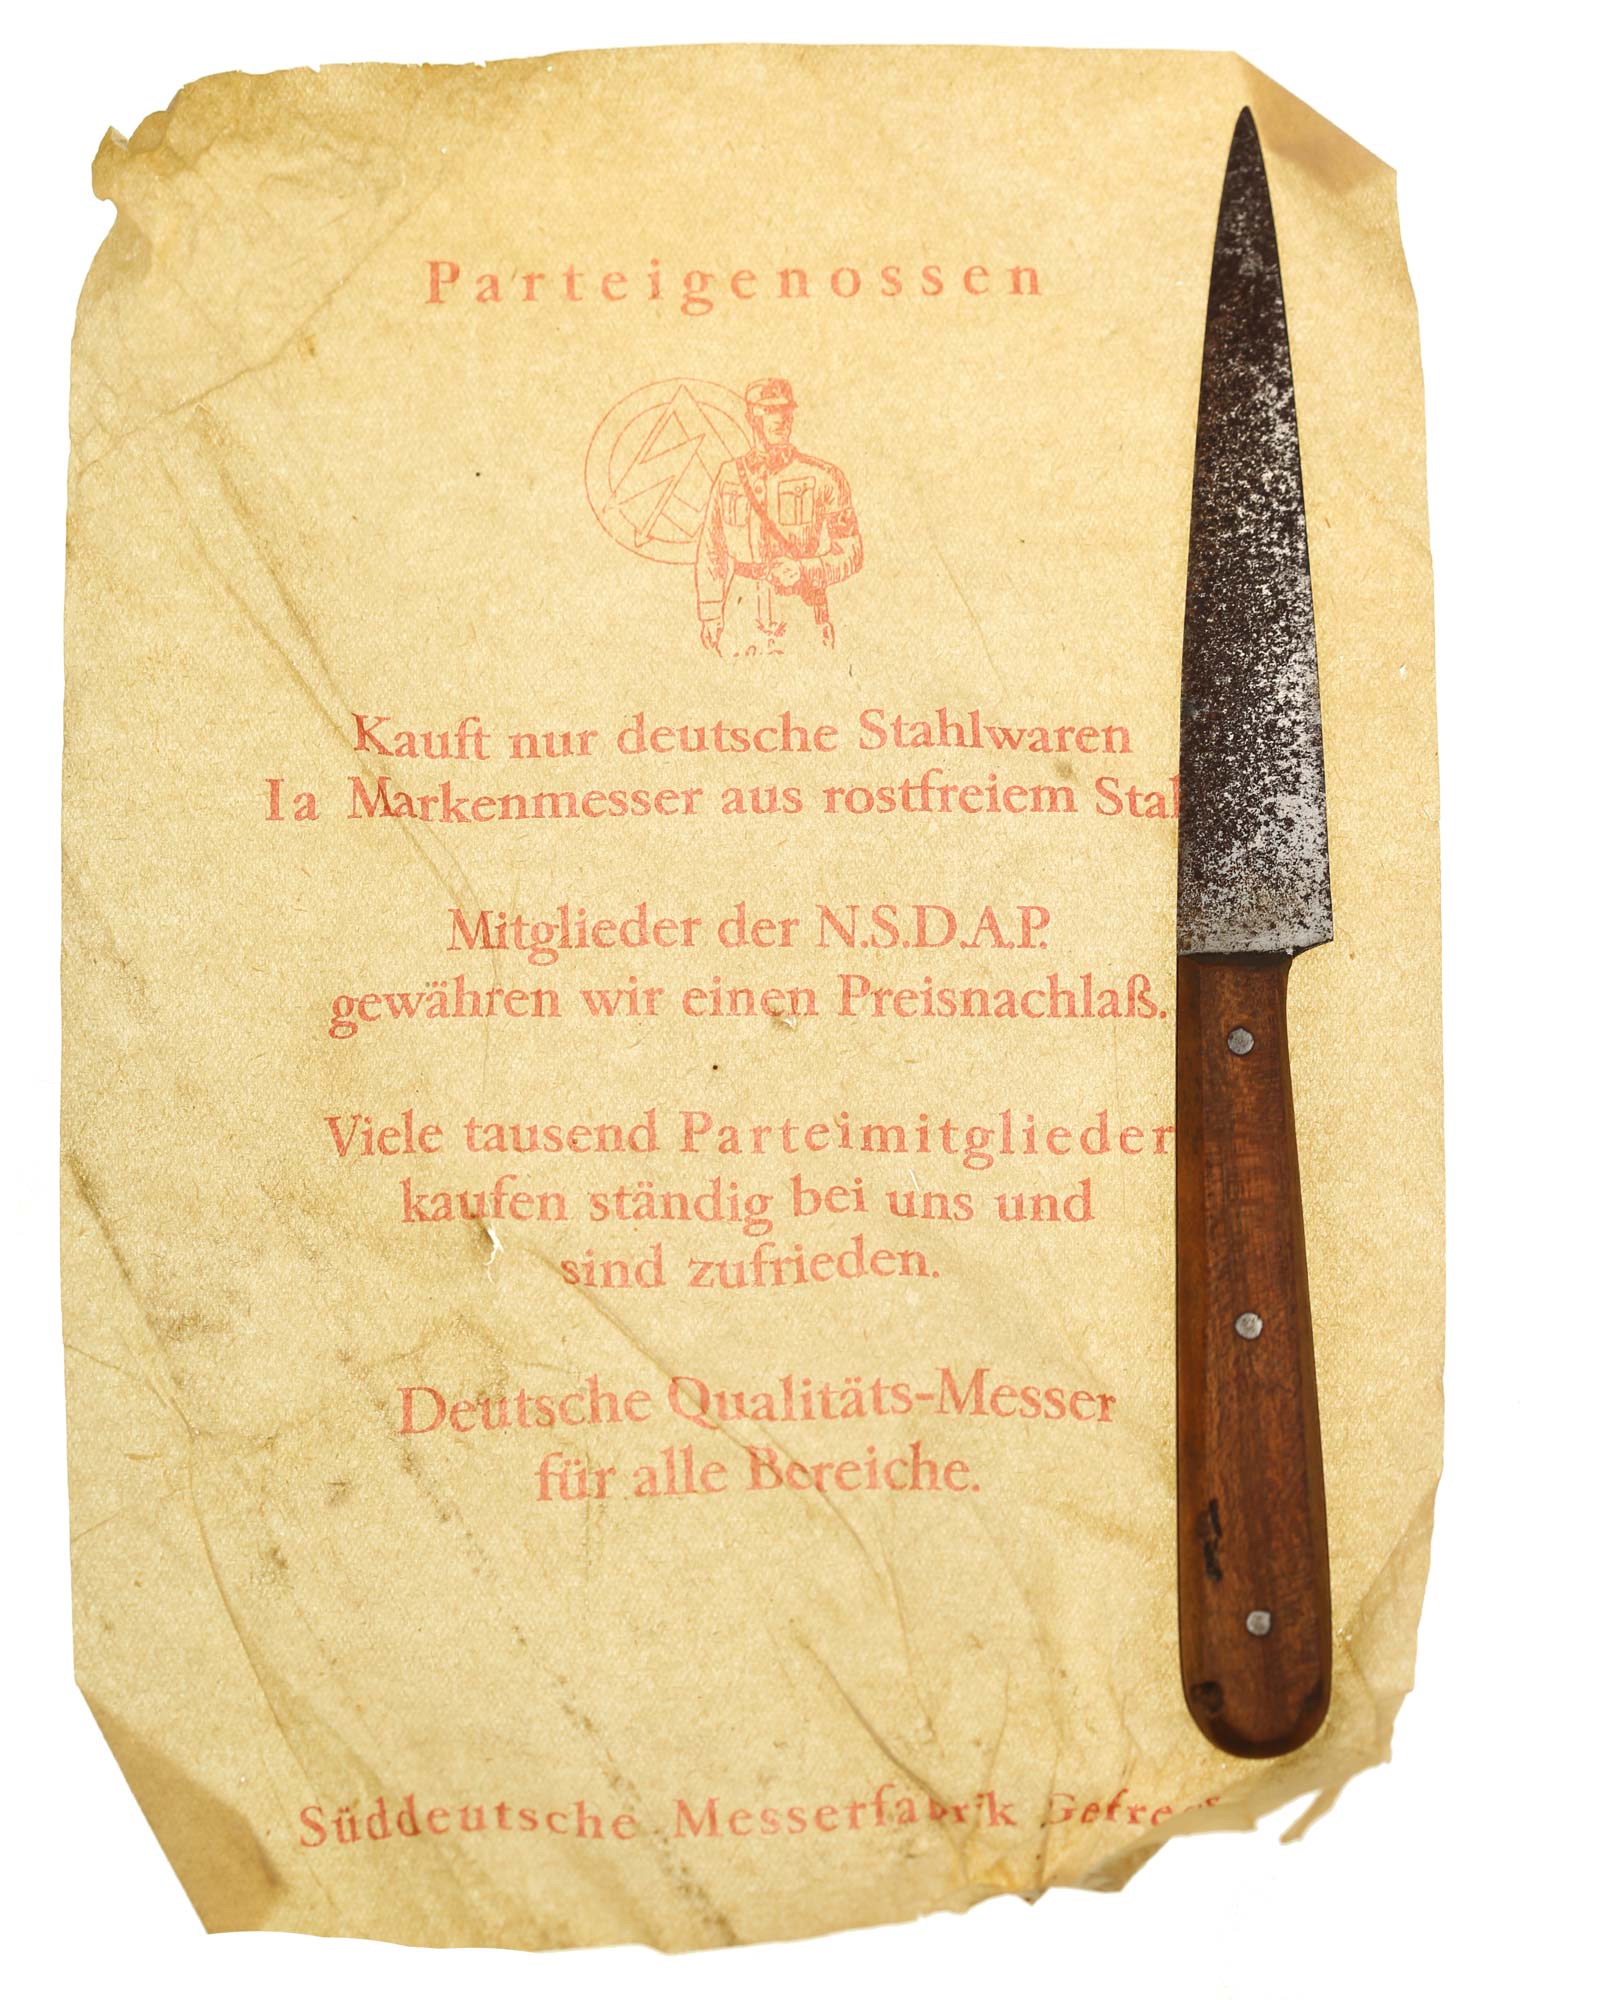 Parteigenossen
SA
Kauft nur deutsche Stahlwaren
Ia Markenmesser aus rostfreiem Stal
Mitglieder der N.S.D.A.P.
gewähren wir einen Preisnachlaß.
Viele tausend Parteimitglieder
kaufen ständig bei uns und
sind zufrieden.
Deutsche Qualitäts-Messer
für alle Bereiche.
Süddeutsche Messerfabrik